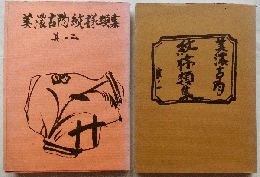 美濃古陶紋様類集
其ノ二
美濃古陶
紋様類集
其ノ一